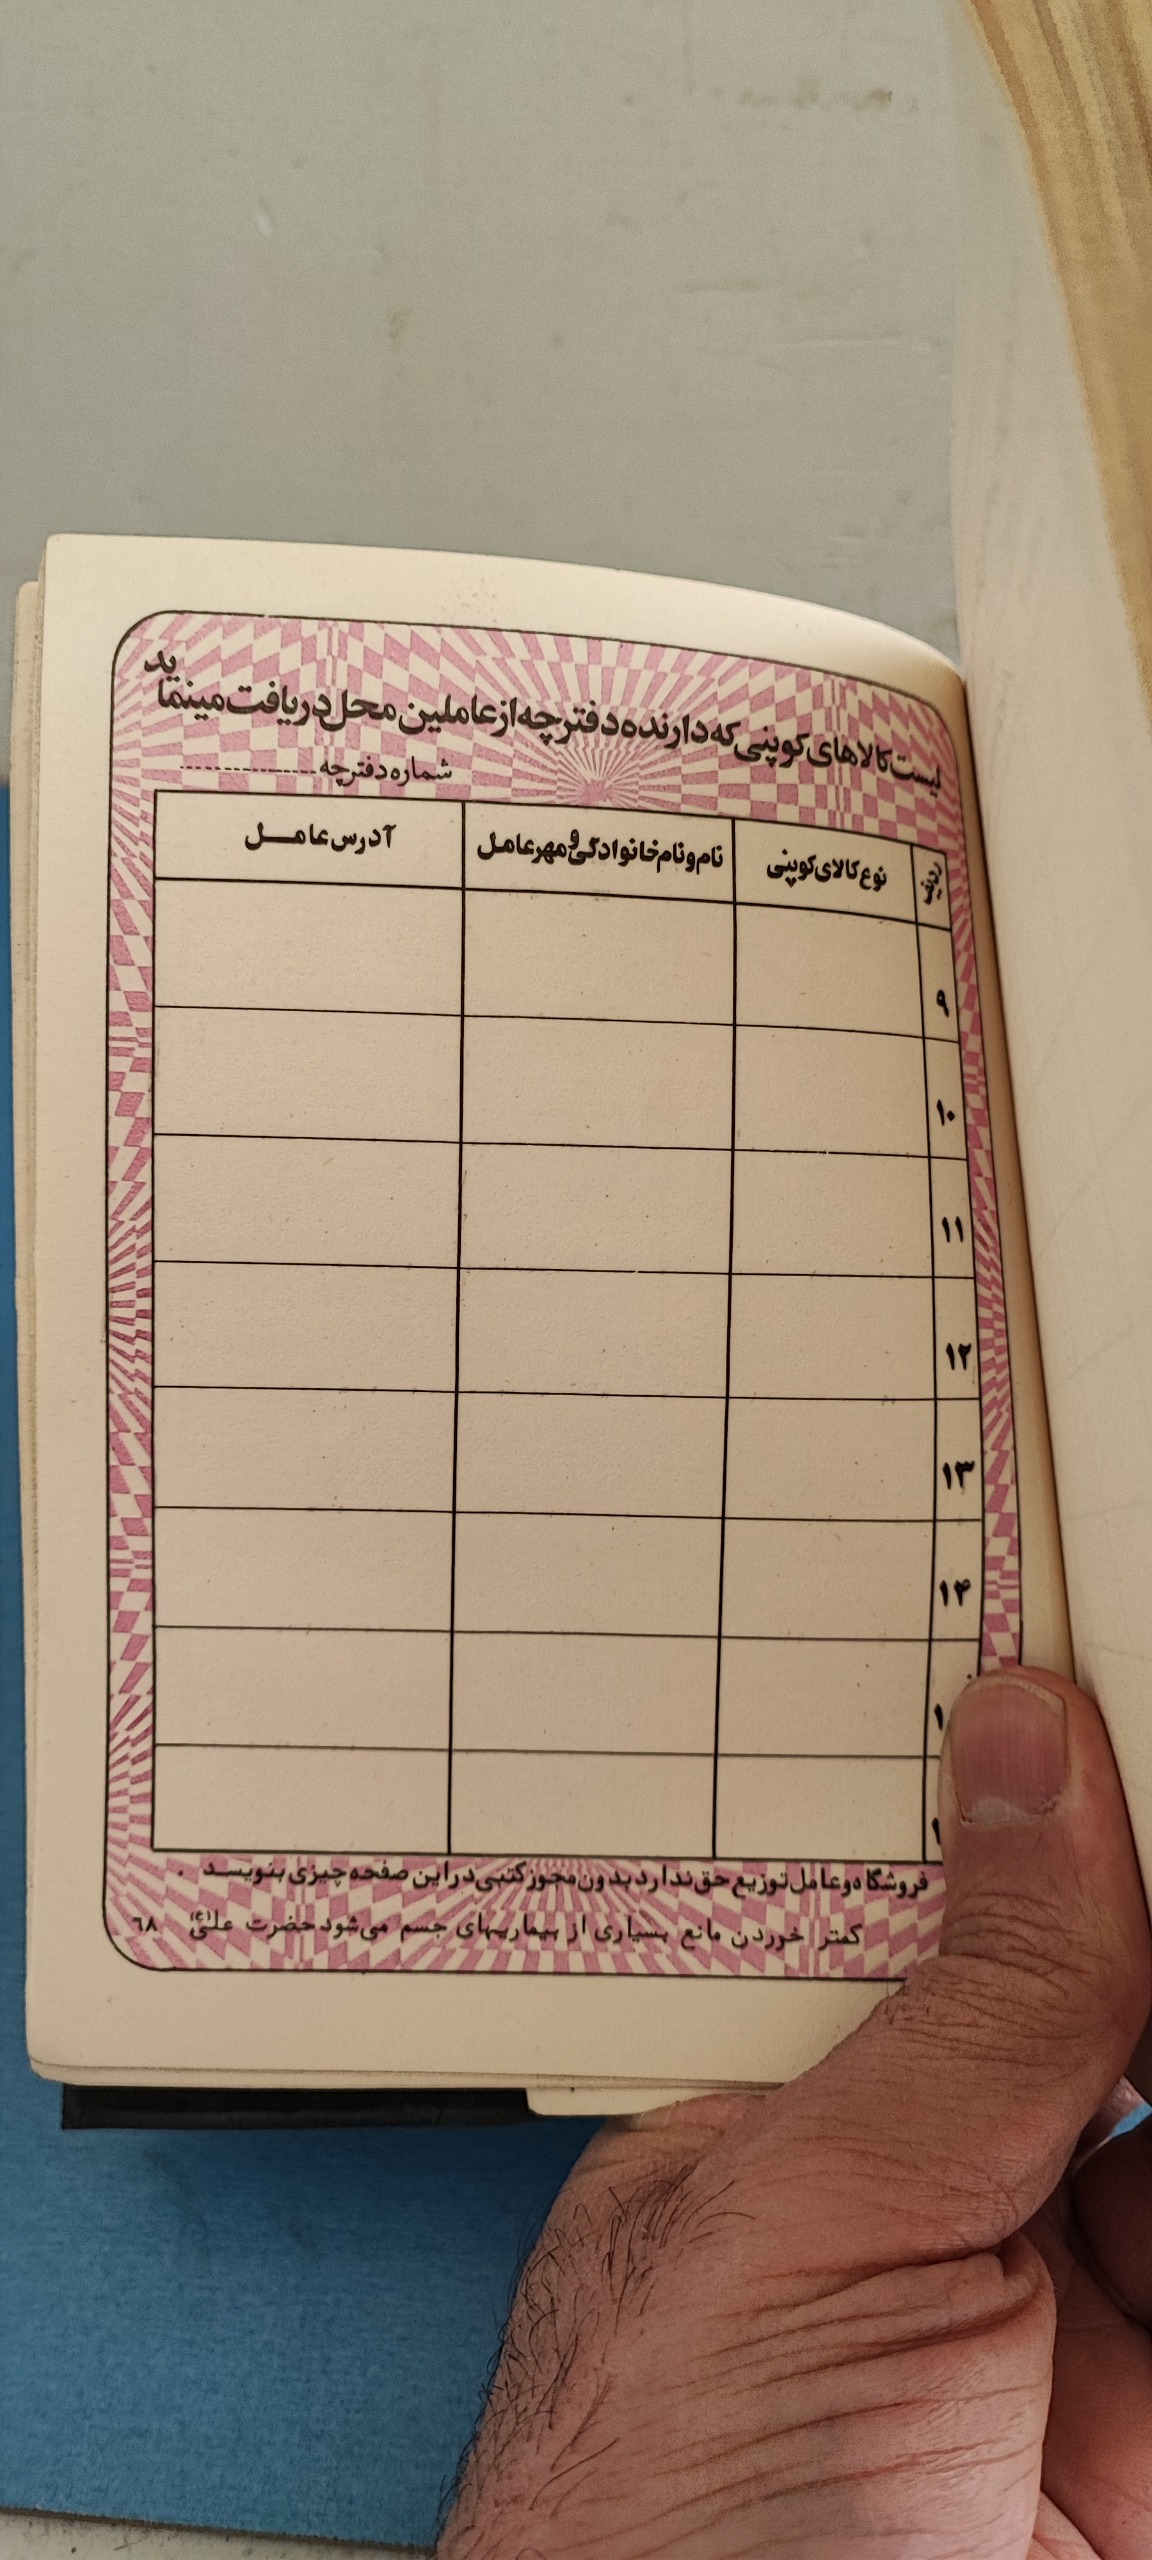 لیست کالاهای کوپنی که دارنده دفترچه از عاملین محل دریافت مینماید
شماره دفترچه
ردیف نوع کالای کوپنی نام و نام خانوادگی و مهر عامل آدرس عامل
۹
۱۰
۱۱
۱۲
۱۳
۱۴
فروشگاه و عامل توزیع حق ندارد بدون مجوز کتبی در این صفحه چیزی بنویسد .
کمتر خوردن مانع بسیاری از بیماریهای جسم می‌شود حضرت علی (ع) ٦٨